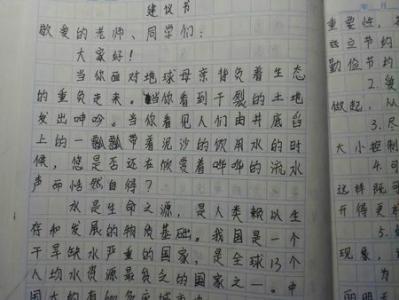 建议书
敬爱的老师、同学们：
大家好！
当你面对地球母亲背负着生态
的重负走来。当你看到干裂的土地
发出呻吟。当你看见人们由井底舀
上的一瓢瓢带着泥沙的饮用水的时
候，您是否还在欣赏着哗哗的流水
声而怡然自得？
水是生命之源，是人类赖以生
存和发展的物质基础。我国是一个
干旱缺水严重的国家，是全球13个
人均水资源最贫乏的国家之一。中
重要性，
应立节约
勤俭节约
2.
做起，从
3.尽
大小控制
4.可
这样既可
开得更
5.
现象，
为